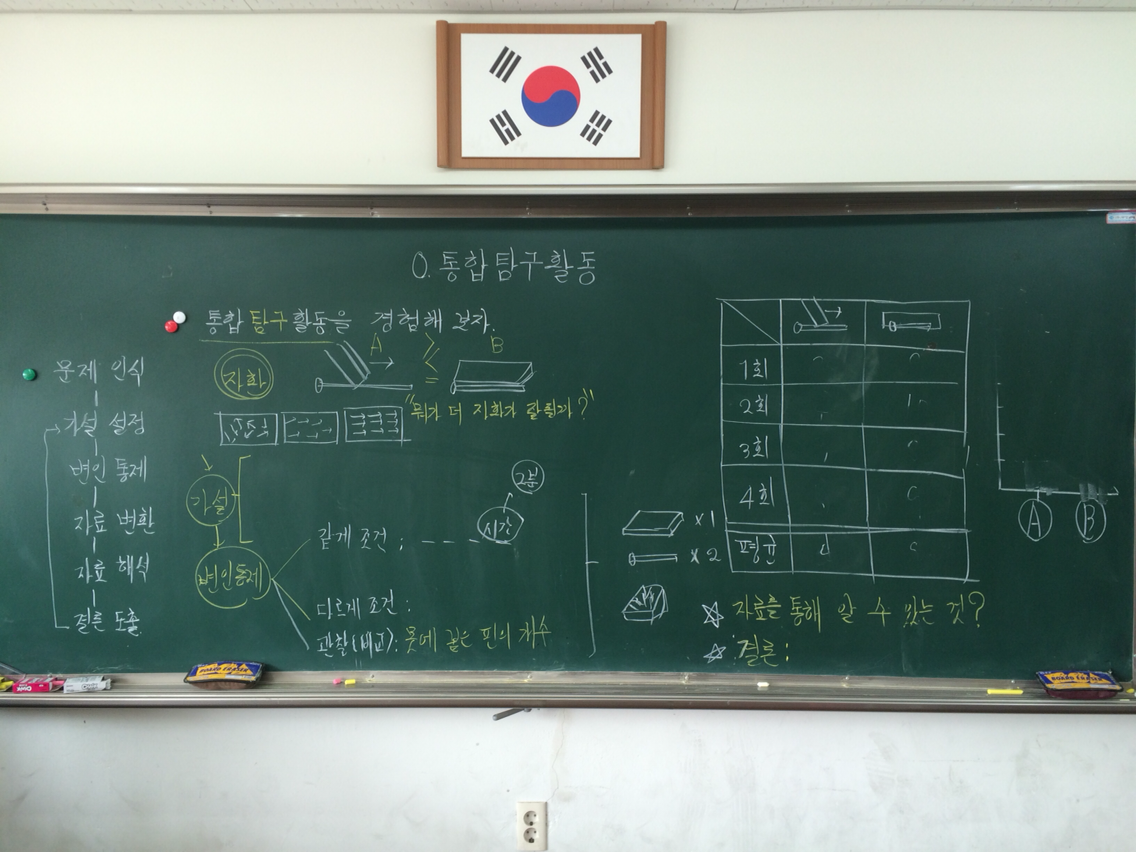 0. 통합탐구활동
통합 탐구 활동을 경험해 보자.
문제 인식
가설 설정
변인 통제
자료 변환
자료 해석
결론 도출
자화
A
B
"뭐가 더 자화가 잘 될까?"
가설
변인통제
같게 조건 :
시간
2분
다르게 조건 :
관찰(비교): 못에 붙는 핀의 개수
x1
x2
1회
2회
3회
4회
평균
A
B
☆ 자료를 통해 알 수 있는 것?
☆ 결론 :
BOARD ERASER
BOARD ERASER